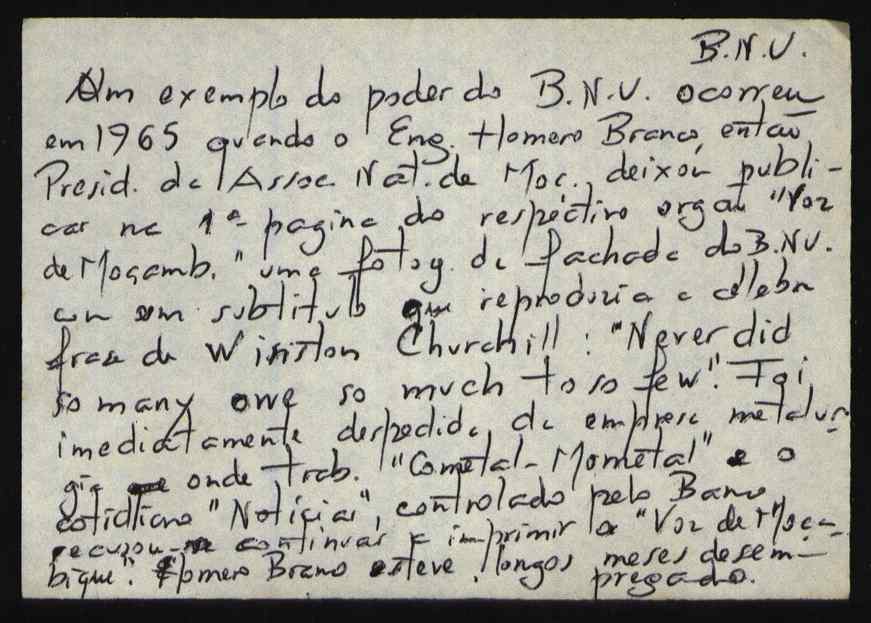 B.N.U.
Um exemplo do poder do B.N.U. ocorreu
em 1965 quando o Eng. Homero Branco, então
Presid. da Assoc. Nat. de Moç. deixou publi-
car na 1ª pagina do respéctivo orgaõ "Voz
de Moçamb." uma fotog. da fachada do B.N.U.
com um subtitulo que reproduzia a célebre
frase de Winston Churchill: "Never did
so many owe so much to so few". Foi
imediatamente despedido da empresa metalur-
gia onde trab. "Cometal-Mometal" e o
cotidiano "Noticias", controlado pelo Banco
recusou-se continuar a imprimir a "Voz de Moça-
bique". Homero Branco esteve longos meses desem-
pregado.